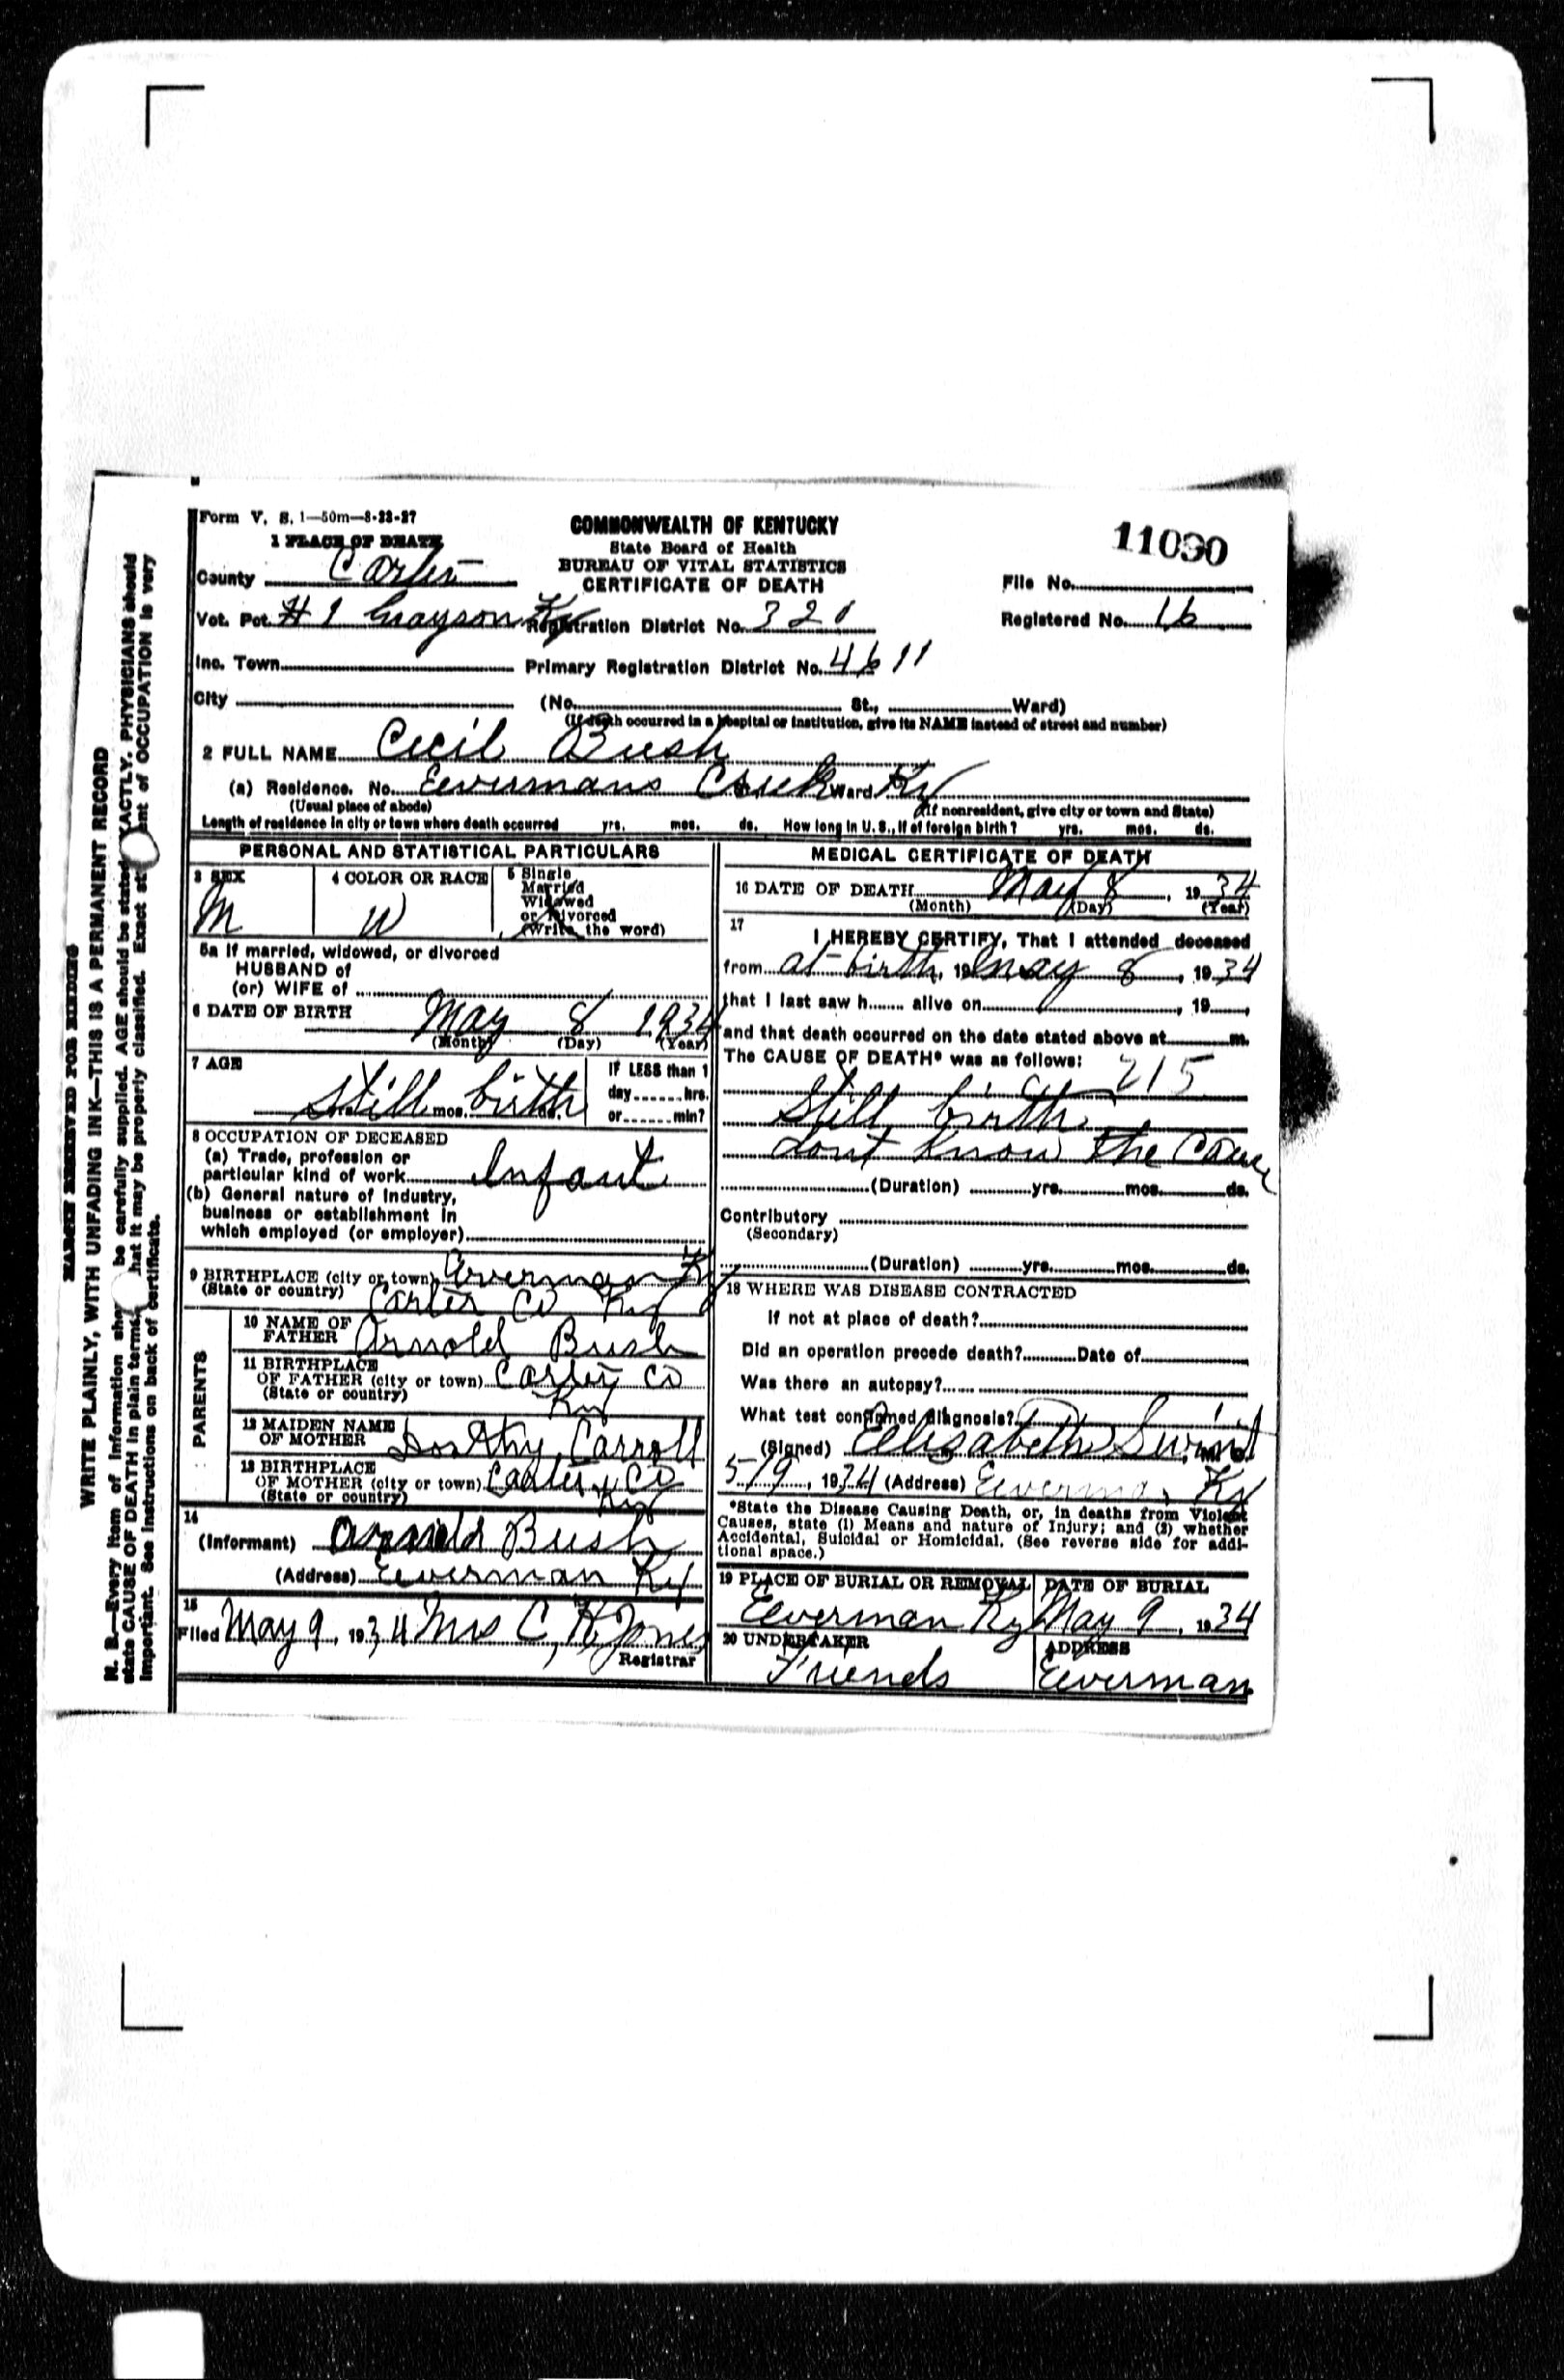 Form V. S. 1—50m—8-23-27
COMMONWEALTH OF KENTUCKY
State Board of Health
BUREAU OF VITAL STATISTICS
CERTIFICATE OF DEATH
11030
1 PLACE OF DEATH
County Carter
File No.
Vot. Pct. #1 Grayson Ky Registration District No. 321
Registered No. 16
Inc. Town Primary Registration District No. 4611
City (No. St., Ward)
(If death occurred in a hospital or institution, give its NAME instead of street and number)
2 FULL NAME Cecil Bush
(a) Residence. No. Eevermans Creek Ward Ky
(Usual place of abode) (If nonresident, give city or town and State)
Length of residence in city or town where death occurred yrs. mos. ds. How long in U. S., if of foreign birth? yrs. mos. ds.
PERSONAL AND STATISTICAL PARTICULARS
3 SEX M
4 COLOR OR RACE W
5 Single
Married
Widowed
or Divorced
(Write the word)
5a If married, widowed, or divorced
HUSBAND of
(or) WIFE of
6 DATE OF BIRTH May 8 1934
(Month) (Day) (Year)
7 AGE Still birth
yrs. mos. ds.
IF LESS than 1
day hrs.
or min?
8 OCCUPATION OF DECEASED
(a) Trade, profession or
particular kind of work Infant
(b) General nature of Industry,
business or establishment in
which employed (or employer)
9 BIRTHPLACE (city or town) Everman Ky
(State or country) Carter Co Ky
PARENTS
10 NAME OF
FATHER Arnold Bush
11 BIRTHPLACE
OF FATHER (city or town) Carter Co
(State or country) Ky
12 MAIDEN NAME
OF MOTHER Dorthy Carroll
13 BIRTHPLACE
OF MOTHER (city or town) Carter Co
(State or country) Ky
14
(Informant) Arnold Bush
(Address) Eeverman Ky
15
Filed May 9, 1934 Mrs C, H Jones
Registrar
MEDICAL CERTIFICATE OF DEATH
16 DATE OF DEATH May 8, 1934
(Month) (Day) (Year)
17
I HEREBY CERTIFY, That I attended deceased
from at birth, 19 May 8, 1934
that I last saw h alive on , 19
and that death occurred on the date stated above at m.
The CAUSE OF DEATH* was as follows:
215
Still birth
dont know the Cause
(Duration) yrs. mos. ds.
Contributory
(Secondary)
(Duration) yrs. mos. ds.
18 WHERE WAS DISEASE CONTRACTED
If not at place of death?
Did an operation precede death? Date of
Was there an autopsy?
What test confirmed diagnosis?
(Signed) Eelisabeth
5/9, 1934 (Address) Ky
*State the Disease Causing Death, or, in deaths from Violent
Causes, state (1) Means and nature of Injury; and (2) whether
Accidental, Suicidal or Homicidal. (See reverse side for addi-
tional space.)
19 PLACE OF BURIAL OR REMOVAL DATE OF BURIAL
Eeverman Ky May 9, 1934
20 UNDERTAKER ADDRESS
Friends Eeverman
MARGIN RESERVED FOR BINDING
WRITE PLAINLY, WITH UNFADING INK—THIS IS A PERMANENT RECORD
N. B.—Every item of information be carefully supplied. AGE should be stated EXACTLY. PHYSICIANS should
state CAUSE OF DEATH in plain terms, that it may be properly classified. Exact of OCCUPATION is very
important. See instructions on back of certificate.